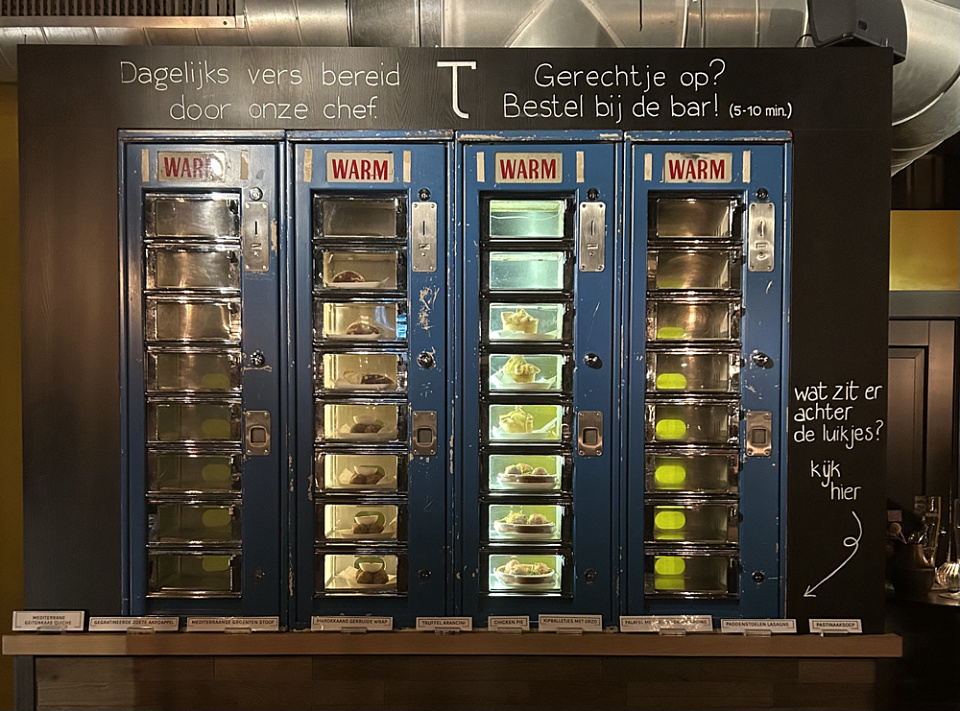 Dagelijks vers bereid
door onze chef.
T
Gerechtje op?
Bestel bij de bar! (5-10 min.)
WARM
WARM
WARM
WARM
wat zit er
achter
de luikjes?
kijk
hier
MEDITERRANE
GEITENKAAS QUICHE
GEGRATINEERDE ZOETE AARDAPPEL
MEDITERRAANSE GROENTEN STOOF
GERUIDE WRAP
TRUFFEL ARANCINI
CHICKEN PIE
KIPBALLETJES MET ORZO
FALAFEL
PADDENSTOELEN LASAGNE
PASTINAAKSOEP